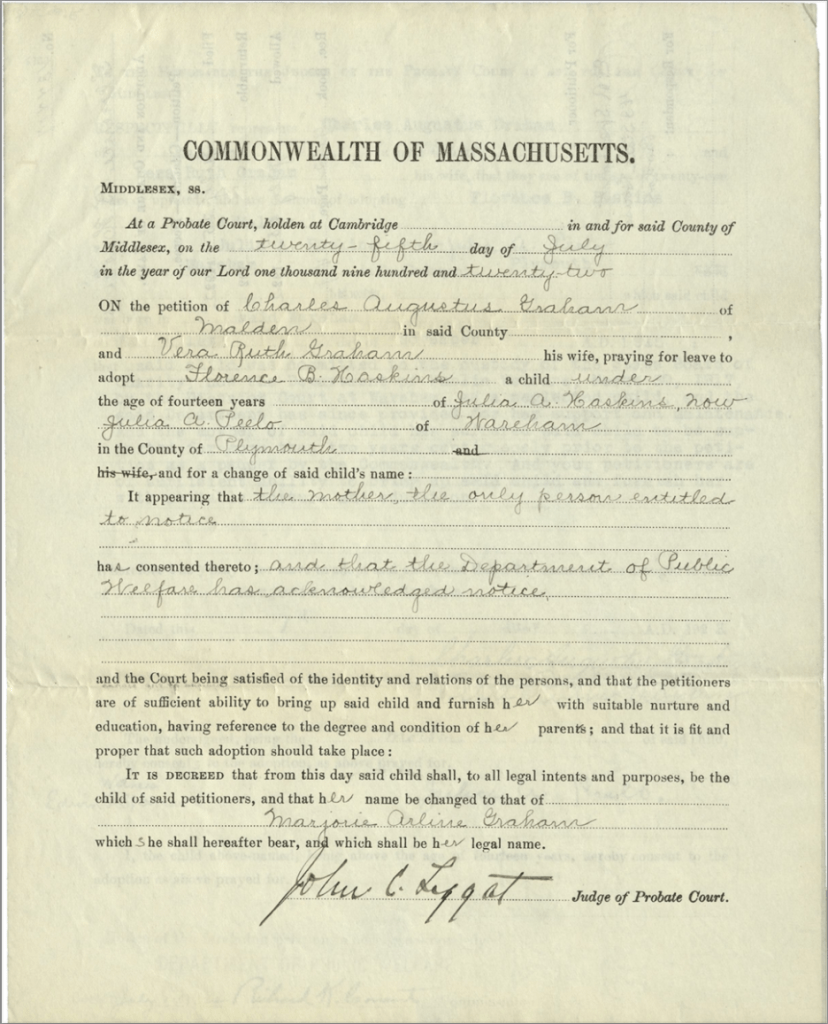 COMMONWEALTH OF MASSACHUSETTS.
MIDDLESEX, SS.
At a Probate Court, holden at Cambridge in and for said County of
Middlesex, on the twenty-fifth day of July
in the year of our Lord one thousand nine hundred and twenty-two
ON the petition of Charles Augustus Graham of
Malden in said County ,
and Vera Ruth Graham his wife, praying for leave to
adopt Florence B. Haskins a child under
the age of fourteen years of Julia A. Haskins, now
Julia A. Peelo of Wareham
in the County of Plymouth and
his wife, and for a change of said child's name :
It appearing that the mother, the only person entitled
to notice
has consented thereto ; and that the Department of Public
Welfare has acknowledged notice
and the Court being satisfied of the identity and relations of the persons, and that the petitioners
are of sufficient ability to bring up said child and furnish her with suitable nurture and
education, having reference to the degree and condition of her parents ; and that it is fit and
proper that such adoption should take place :
IT IS DECREED that from this day said child shall, to all legal intents and purposes, be the
child of said petitioners, and that her name be changed to that of
Marjorie Arline Graham
which she shall hereafter bear, and which shall be her legal name.
John C. Leggat Judge of Probate Court.